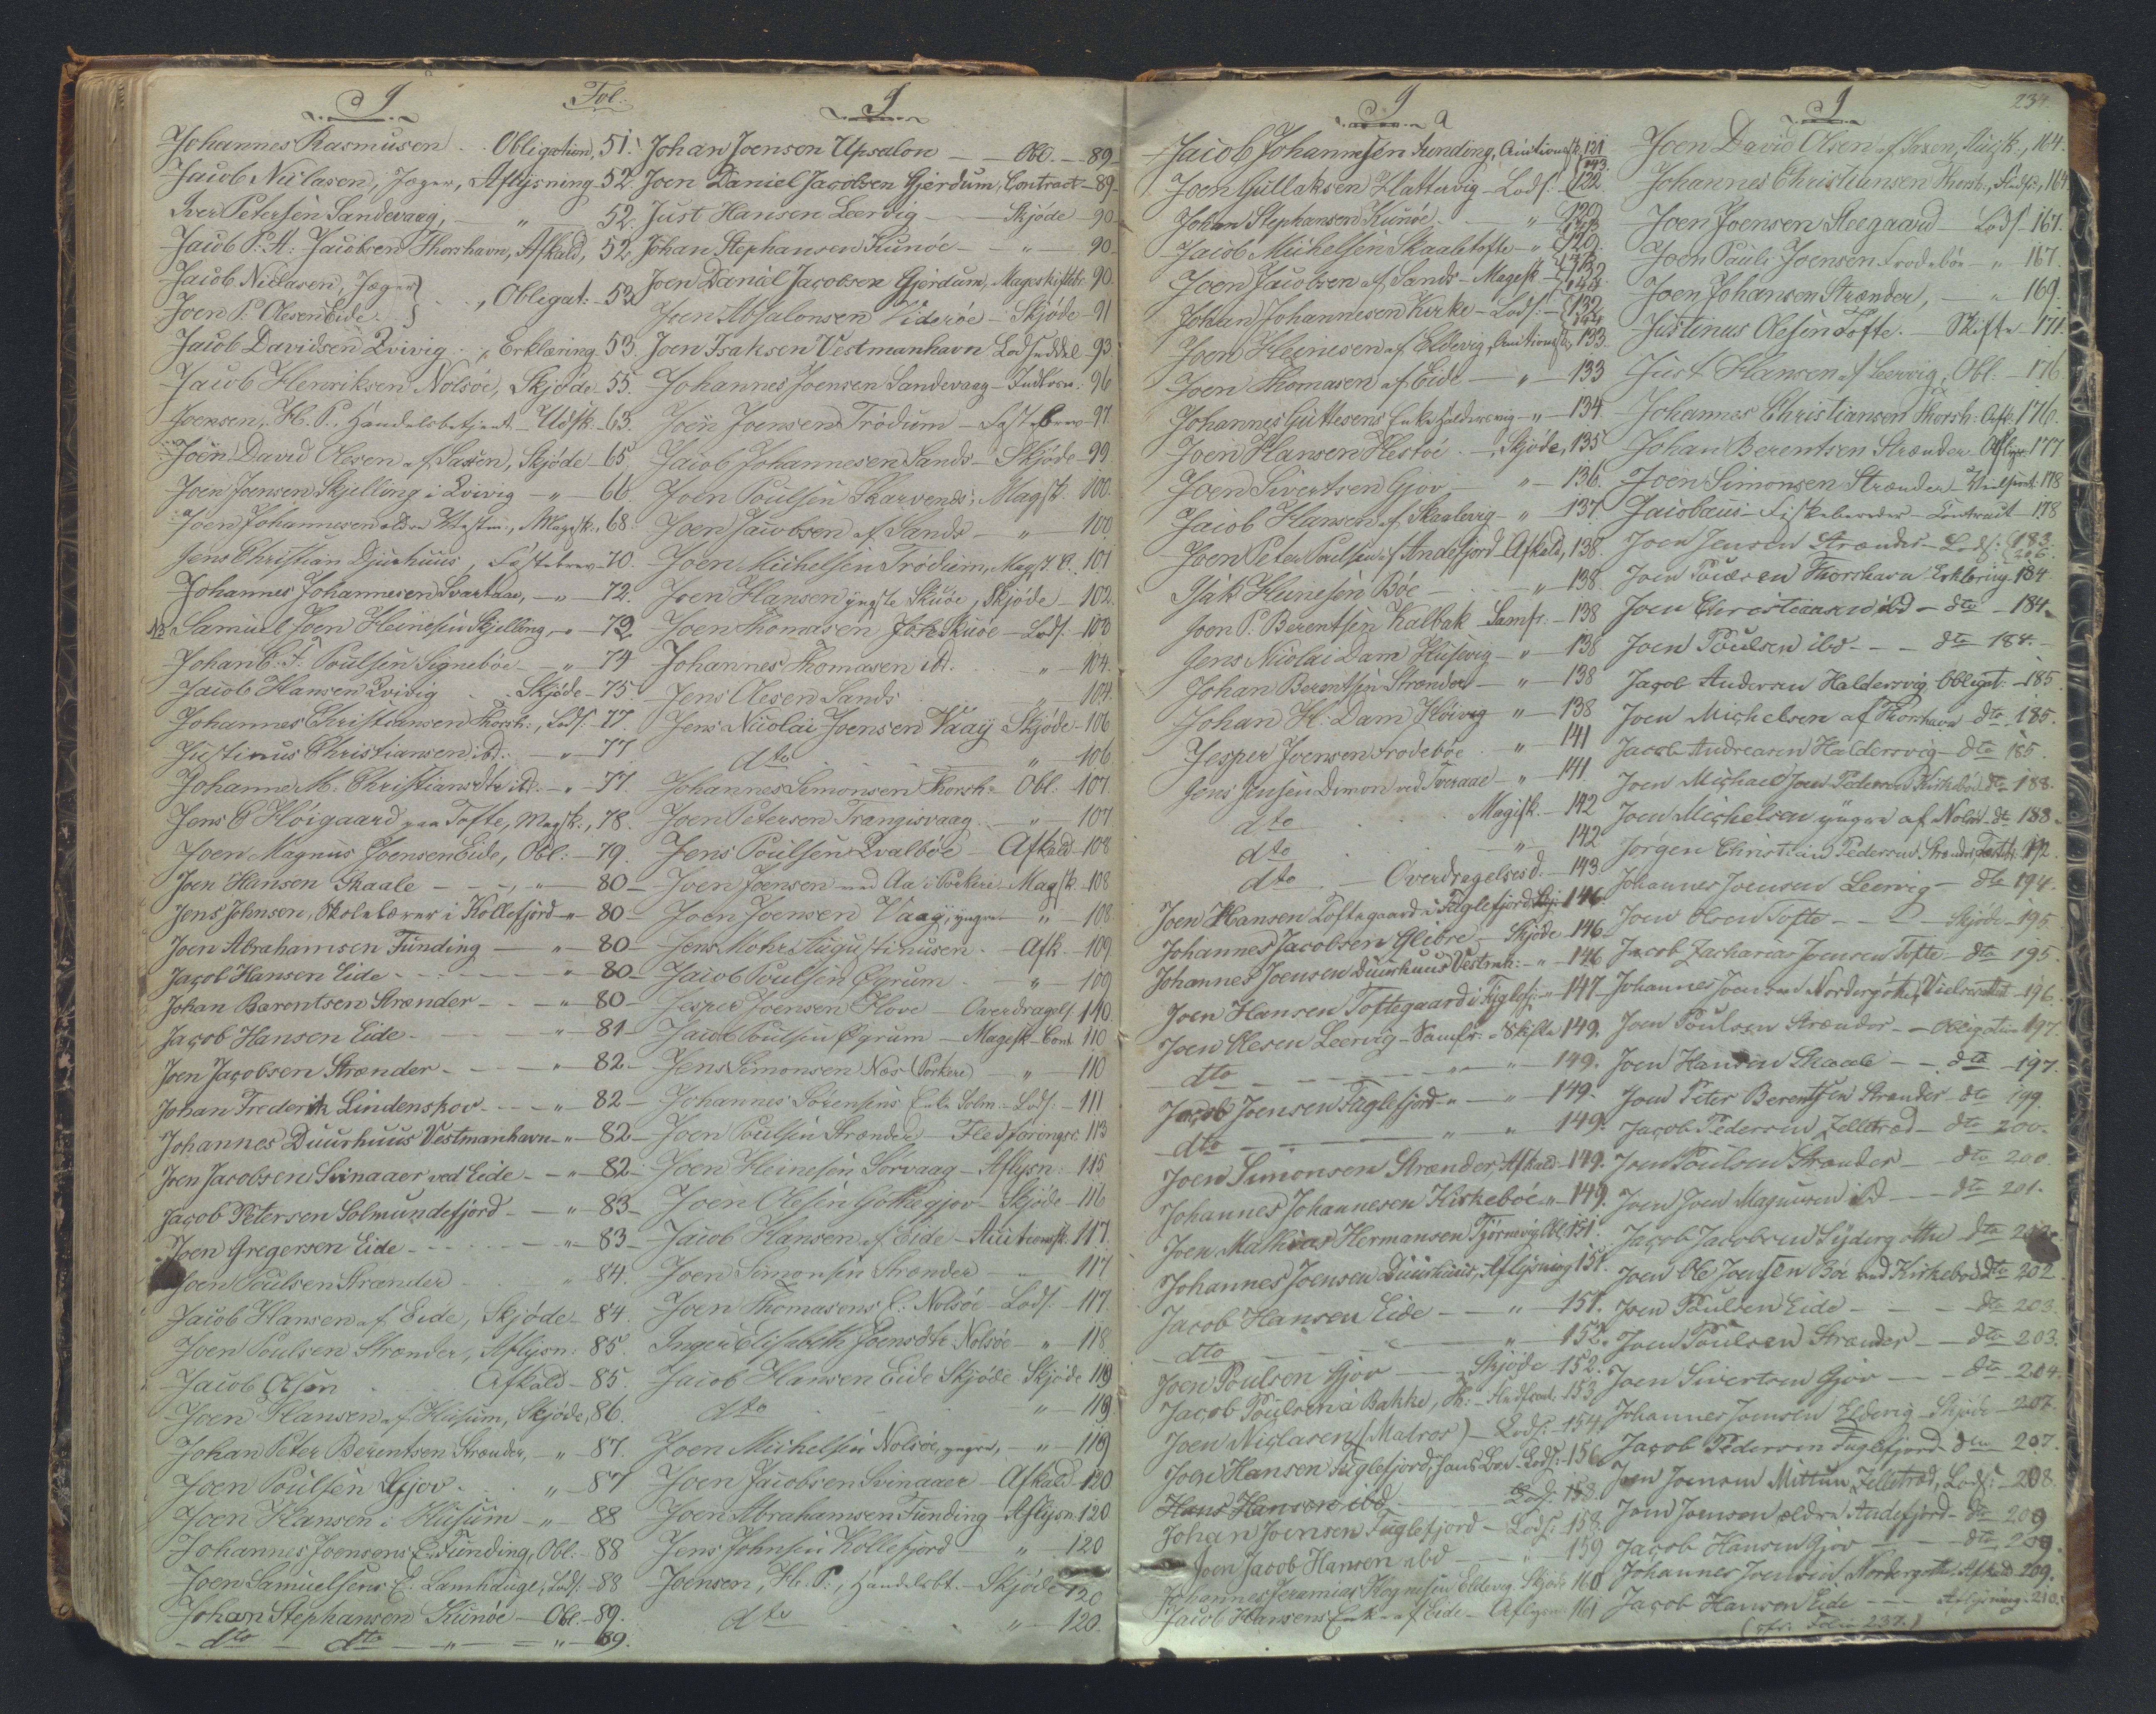 I Fol.
Johannes Rasmusen Obligation, 51.
Jacob Niclasen, Jæger, Aflysning 52.
Iver Petersen Sandevaag, — " 52.
Jacob P. H. Jacobsen Thorshavn, Afkald, 52.
Jacob Niclasen, Jæger
Joen P. Olesen Eide } Obligat: 53.
Jacob Davidsen Qvivig, Erklæring 53.
Jacob Henriksen Nolsöe, Skjöde 55.
Joensen, H. P. Handelsbetjent Udsk. 63.
Joen David Olesen af Saxen, Skjöde 65.
Joen Joensen Skjelling i Qvivig — " 66.
Joen Johannesen ældre Vestm., Magsk., 68.
Jens Christian Djurhuus, Fæstebrev 70.
Johannes Johannesen Svartaae, — " — 72.
NB Samuel Joen Heinesen Skjelling — " 72
Johan C. F. Poulsen Signeböe — " 74
Jacob Hansen Qvivig Skjöde 75
Johannes Christiansen Thorsh:, Lods. 77.
Justinus Christiansen ibd: — " — 77
Johanne M. Christiansdtr ibd. — " — 77.
Jens C Höigaard paa Tofte, Magsk., 78.
Joen Magnus Joensen Eide, Obl: 79.
Joen Hansen Skaale — " — 80
Jens Johnsen, Skolelærer i Kollefjord — " 80
Joen Abrahamsen Funding — " — 80
Jacob Hansen Eide — " 80
Johan Barentsen Strænder — " — 80
Jacob Hansen Eide — " — 81
Joen Jacobsen Strænder — " 82
Johan Frederik Lindenskov — " 82
Johannes Duurhuus Vestmanhavn — " — 82
Joen Jacobsen Svinaaer ved Eide — " — 82
Jacob Petersen Solmundefjord — " 83
Joen Gregersen Eide — " 83
Joen Poulsen Strænder " 84.
Jacob Hansen af Eide, Skjöde 84.
Joen Poulsen Strænder, Aflysn: 85.
Jacob Olsen Afkald 85.
Joen Hansen af Husum, Skjöde, 86.
Johan Peter Berentsen Strænder, — " 87.
Joen Poulsen Gjov " 87
Joen Hansen i Husum — " — 88
Johannes Joensens E. Funding, Obl: 88
Joen Samuelsens E. Lamhauge, Lods. 88
Johan Stephansen Kunöe — Obl. 89.
dto dto — " — " 89.
I
Johan Joensen Upsalon — Obl. 89
Joen Daniel Jacobsen Gjerdum, Contract 89
Just Hansen Leervig — Skjöde 90
Johan Stephansen Kunöe — " 90
Joen Daniel Jacobsen Gjerdum, Mageskiftebr. 90.
Joen Absalonsen Videröe — Skjöde 91
Joen Isaksen Vestmanhavn Lodseddel 93
Johannes Joensen Sandevaag — 96
Joen Joensen Trödum — Fæstebrev 97
Jacob Johannesen Sands — Skjöde 99
Joen Poulsen Skarvenes, Magsk. 100.
Joen Jacobsen af Sands — " — 100
Joen Michelsen Trödum, Magsk. C. 101
Joen Hansen yngste Skuöe, Skjöde 102.
Joen Thomasen Skuöe — Lods. 103
Johannes Thomasen ibd. " 104.
Jens Olesen Sands " 104
Jens Nicolai Joensen Vaag Skjöde 106
dto " 106
Johannes Simonsen Thorsh: Obl: 107.
Joen Petersen Trangisvaag — " — 107
Jens Poulsen Qvalböe — Afkald 108
Joen Joensen ved Aa i Porkeri, Magsk. 108
Joen Joensen Vaag, yngre " 108
Jens Mohr Augustinusen — Afk. 109
Jacob Poulsen Øgrum " 109
Jesper Joensen Hove — Overdragels. 110
Jacob Poulsen Øgrum — Magesk. Cont. 110
Jens Simonsen Næs (Porkeri) — " — 110
Johannes Sörensens Enke Solm. Lods. 111
Joen Poulsen Strænder — 113
Joen Heinesen Sörvaag — Aflysn: 115
Joen Olesen Gottegjov — Skjöde 116
Jacob Hansen af Eide — Auctionssk. 117.
Joen Simonsen Strænder — 117
Joen Thomasens E. Nolsöe — Lods. 117.
Inger Elisabeth Joensdtr Nolsöe — " 118.
Jacob Hansen Eide Skjöde Skjöde 119
dto " 119.
Joen Michelsen Nolsöe, yngre, — " 119
Joen Jacobsen Svinaaer — Afkald 120
Joen Abrahamsen Funding — Aflysn 120
Jens Johnsen Kollefjord — " 120
Joensen, H. P., Handelsbt. — Skjöde 120
dto " — 120.
I a
Jacob Johannesen Funding, Auctionssk. 121
Joen Gullaksen Hattervig — Lods: 122
Johan Stephansen Kunöe — "
Jacob Michelsen Skaaletofte — "
Joen Jacobsen af Sands — Magesk. 132
Johan Johannesen Kirke — Lods: 132
Joen Heinesen af Eldevig, Auctionssk. 133.
Joen Thomasen af Eide — " — 133
Johannes Guttesens Enke Haldersvig — " — 134.
Joen Hansen Hestöe — Skjöde, 135
Joen Sivertsen Gjov — " — 136.
Jacob Hansen af Skaalevig — " 137
Joen Peter Poulsen af Andefjord Afkald, 138.
Isak Heinesen Böe — " 138.
Joen P. Berentsen Kalbak Samfr. 138
Jens Nicolai Dam Husevig — " — 138
Johan Berentsen Strænder — " — 138
Johan H. Dam Hvivig " — 138
Jesper Joensen Frodeböe " — 141
Jens Jensen Dimon ved Tveraae — " — 141.
dto Magesk. 142
dto " 142
dto — Overdragelsesd. 143
Joen Hansen Toftegaard i Fuglefjord Skj. 146
Johannes Jacobsen Glibre — Skjöde 146
Johannes Joensen Duurhuus Vestmh: — " 146
Joen Hansen Toftegaard i Fuglefj: — " 147
Joen Olesen Leervig — Samfr. Skifte 149.
dto — " — " 149.
Jacob Joensen Fuglefjord — " — " 149.
dto — " " 149.
Joen Simonsen Strænder Afkald 149.
Johannes Johannesen Kirkeböe — " 149.
Joen Mathias Hermansen Tjörnevig Obl 151.
Johannes Joensen Duurhuus, Aflysning 151.
Jacob Hansen Eide — " 151.
dto — " 152.
Joen Poulsen Gjov — Skjöde 152.
Jacob Poulsen á Bakke, 153.
Joen Niclasen (Matros) — Lods. 154
Joen Hansen Fuglefjord, hans Bo Lods. 156
Hans Hansen ibd — Lods. 158.
Johan Joensen Fuglefjord — Lods: 158
Joen Jacob Hansen ibd — " 159
Johannes Jeremias Hognesen Eldevig, Skjöde 160
Jacob Hansens Enke af Eide — Aflysn. 161
I 234.
Joen David Olsen af Saxen, 164.
Johannes Christiansen Thorsh., 164
Joen Joensen Steegaard — Lods 167.
Joen Pauli Joensen Frodeböe " 167
Joen Johansen Strænder, — " 169.
Justinus Olesen Tofte. — Skifte 171.
Just Hansen af Leervig, Obl. 176
Johannes Christiansen Thorsh. Afk. 176.
Johan Berentsen Strænder Aflysn. 177
Joen Simonsen Strænder 178
Jacobæus Fiskebereder — Contract 178
Joen Jensen Strænder — Lods: 183. 206.
Joen Poulsen Thorshavn Erklæring 184.
Joen Christiansen ibd — dto 184.
Joen Poulsen ibd — dto 184.
Jacob Andersen Haldersvig Obligat: 185
Joen Michelsen af Thorshavn dto 185.
Jacob Andreasen Haldersvig — dto 185
Joen Michael Joen Pedersen Kirkebö dto 188.
Joen Michelsen yngre af Nols. dto 188.
Jörgen Christian Pedersen Strænder 192.
Johannes Joensen Leervig — dto 194.
Joen Olsen Tofte — Skjöde 195
Jacob Zacharias Joensen Tofte — dto 195.
Johannes Joensen Nordregöte, Vielsesattest 196.
Joen Poulsen Strænder — Obligation 197.
Joen Hansen Skaale — dto 197.
Joen Peter Berentsen Strænder dto 199.
Jacob Pedersen Zelletræd — dto 200.
Joen Poulsen Strænder — dto 200.
Joen Joen Magnusen ibd — dto 201.
Jacob Jacobsen Sydergøthe dto 202.
Joen Ole Joensen Böe ved Kirkebö dto 202.
Joen Poulsen Eide — dto 203.
Joen Poulsen Strænder — dto 203.
Joen Sivertsen Gjov — dto 204.
Johannes Joensen Eldevig Skjöde 207.
Jacob Pedersen Fuglefjord dto 207.
Joen Joensen Mittun, Zelletræd, Lods: 208.
Joen Joensen ældre Andefjord — dto 209
Jacob Hansen Gjov — dto 209.
Johannes Joensen Nordregøthe Afkald 209.
Jacob Hansen Eide — Aflysning 210.
(cfr. Folio 237.)